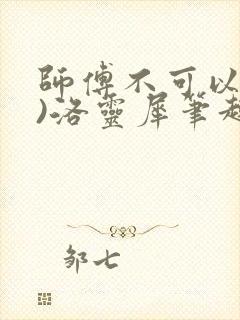 師傅不可以
)洛靈犀筆趣
邹七